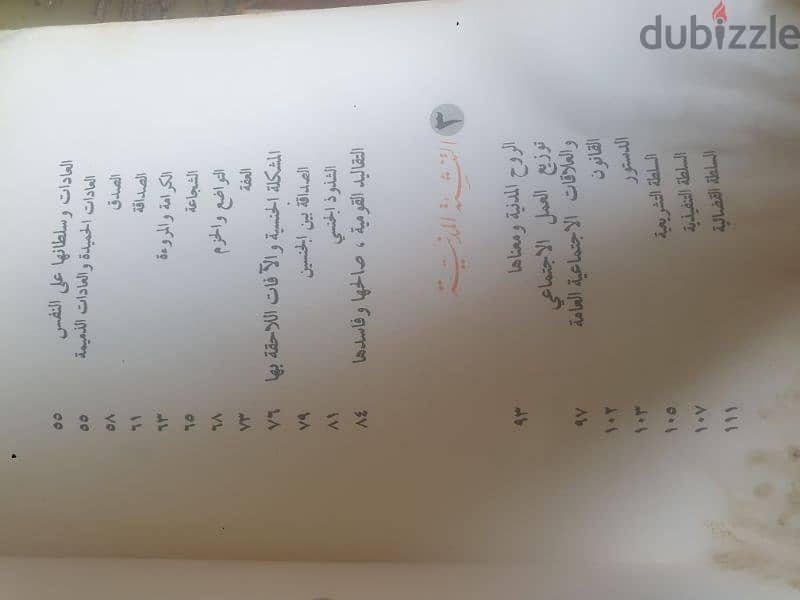 dubizzle
العادات وسلطانها على النفس ٥٥
العادات الحميدة والعادات الذميمة ٥٥
الصدق ٥٨
الصداقة ٦١
الكرامة والمروءة ٦٣
الشجاعة ٦٥
التواضع والحزم ٦٨
العفة ٧٣
المشكلة الجنسية والآفات اللاحقة بها ٧٦
الصداقة بين الجنسين ٧٩
الشذوذ الجنسي ٨١
التقاليد القومية ، صالحها وفاسدها ٨٤
٣
التنشئة المدنية
الروح المدنية ومعناها ٩٣
توزيع العمل الاجتماعي
والعلاقات الاجتماعية العامة ٩٧
القانون ١٠٢
الدستور ١٠٣
السلطة التشريعية ١٠٥
السلطة التنفيذية ١٠٧
السلطة القضائية ١١١